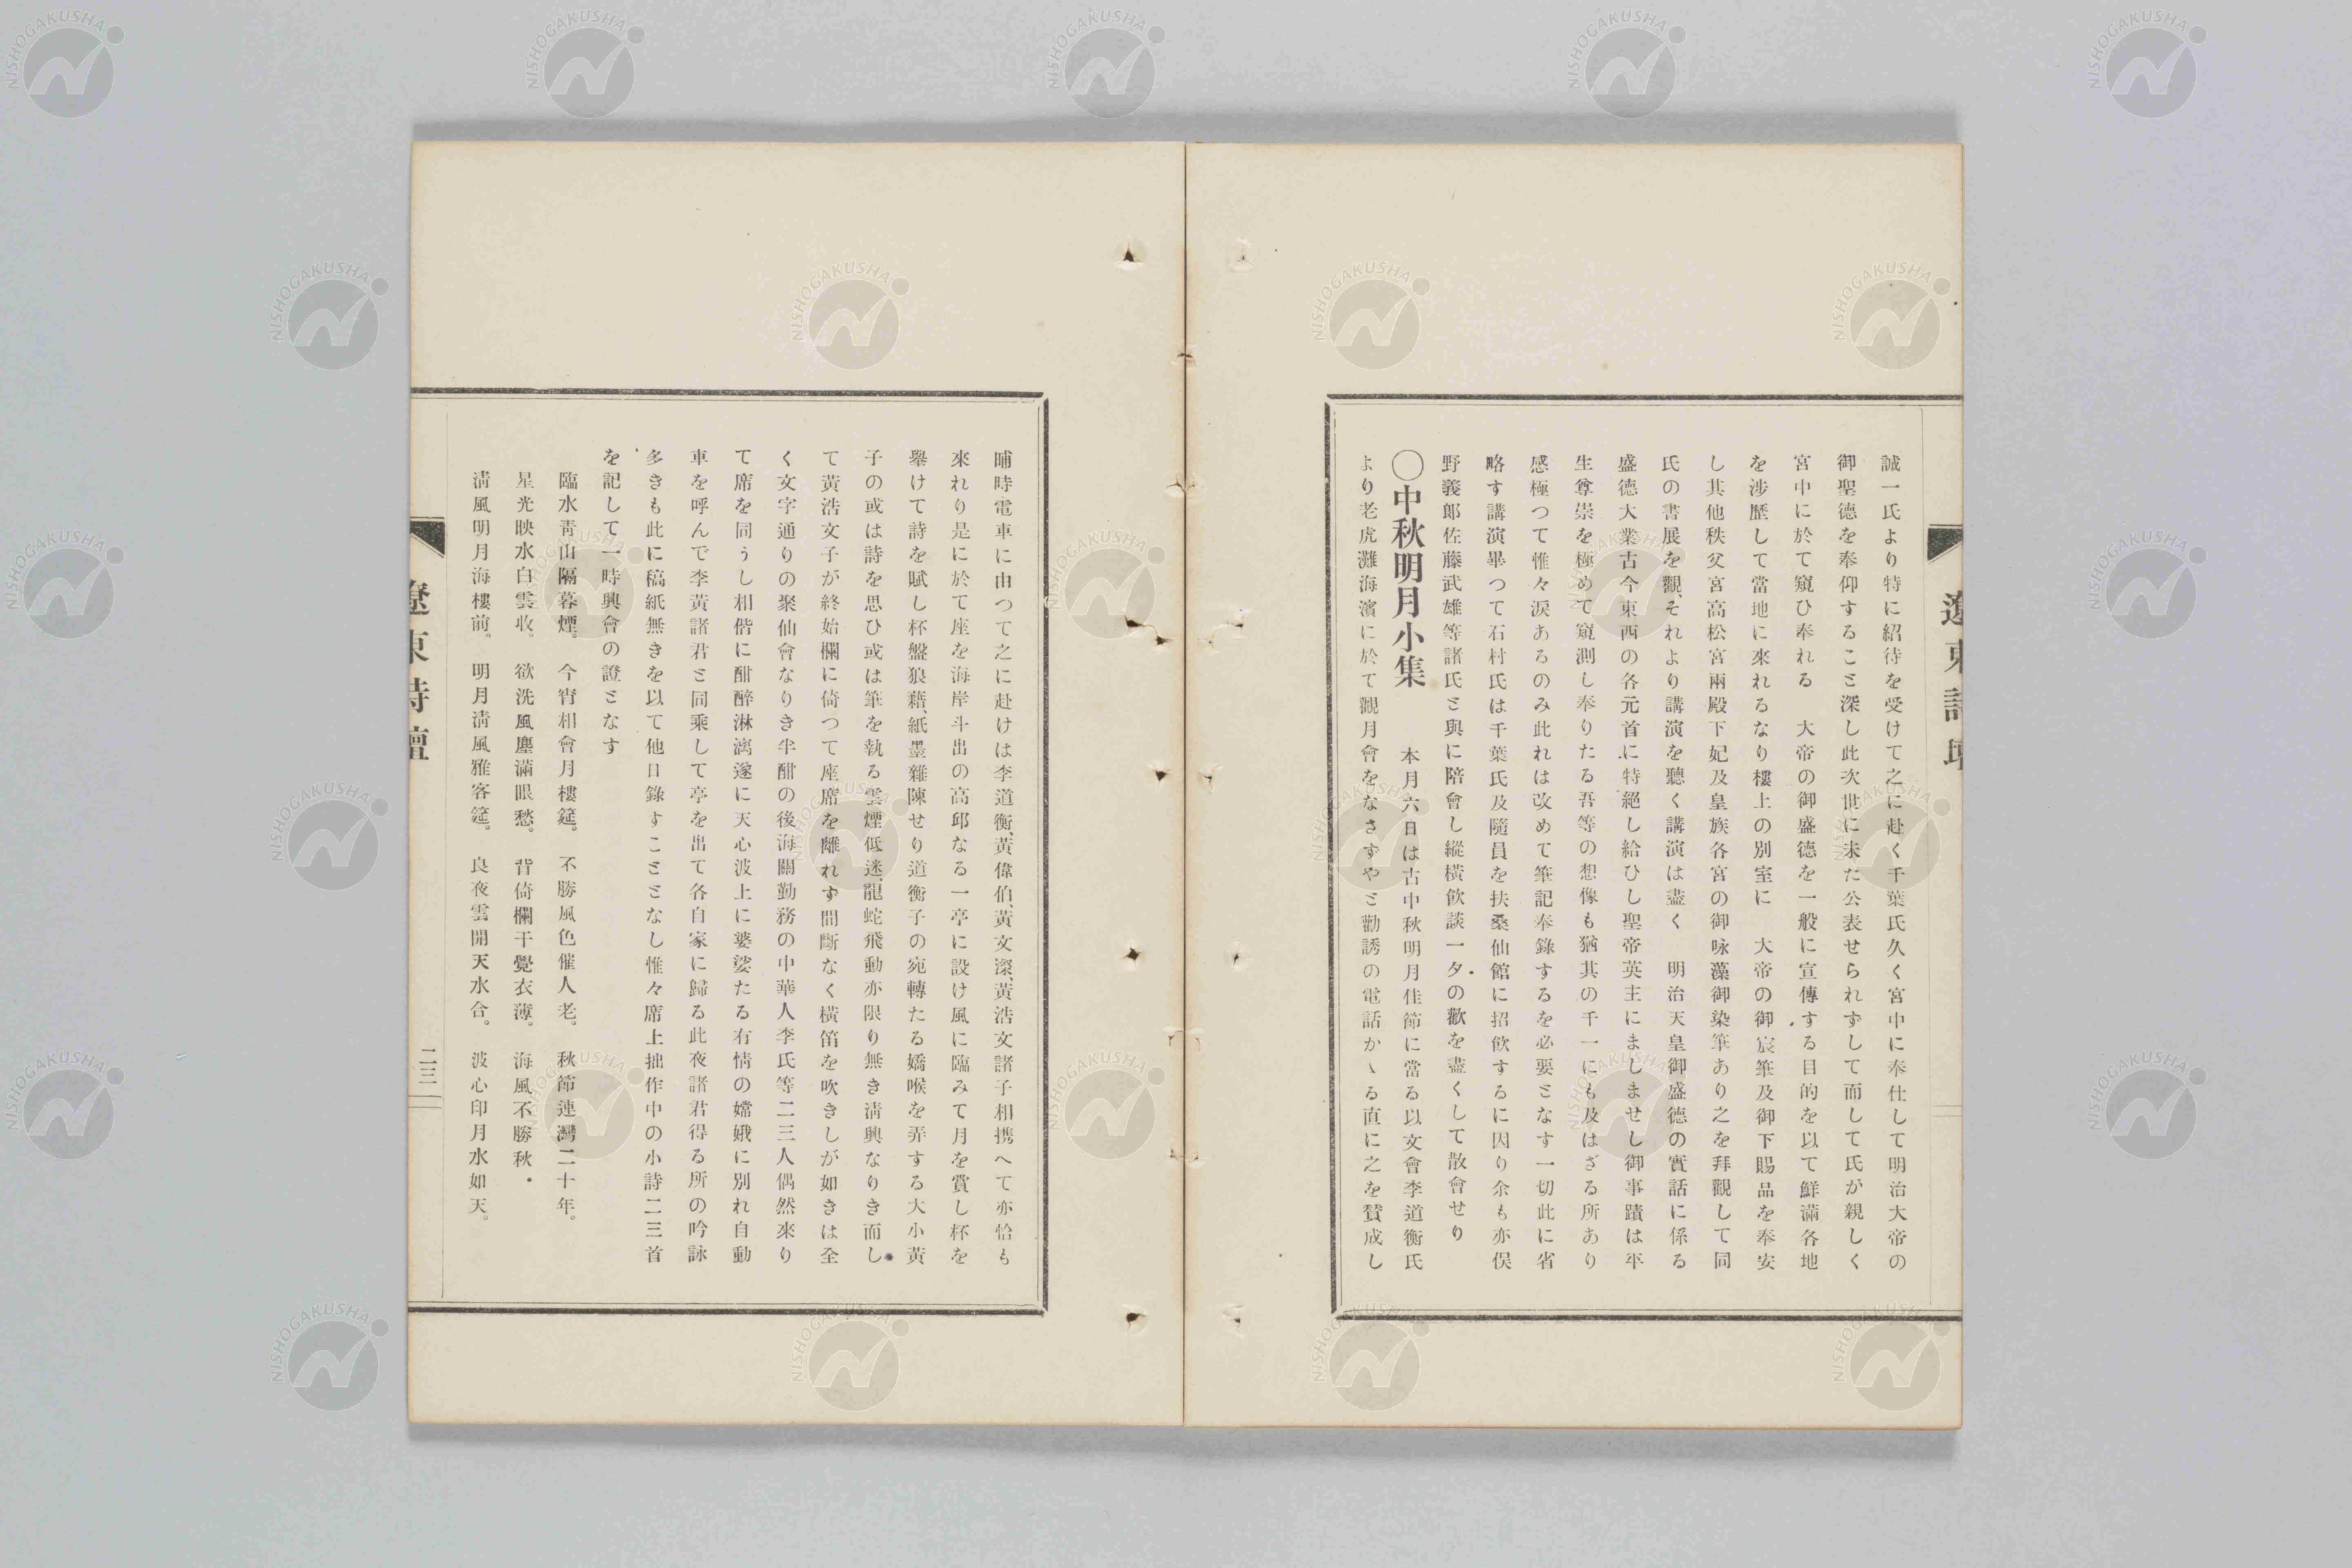 遼東詩壇
誠一氏より特に紹待を受けて之に赴く千葉氏久く宮中に奉仕して明治大帝の
御聖德を奉仰すること深し此次世に未た公表せられすして而して氏が親しく
宮中に於て窺ひ奉れる　大帝の御盛德を一般に宣傳する目的を以て鮮滿各地
を涉歷して當地に來れるなり樓上の別室に　大帝の御宸筆及御下賜品を奉安
し其他秩父宮高松宮兩殿下妃及皇族各宮の御咏藻御染筆あり之を拜觀して同
氏の書展を觀、それより講演を聽く講演は盡く　明治天皇御盛德の實話に係る
盛德大業古今東西の各元首に特絕し給ひし聖帝英主にましませし御事蹟は平
生尊崇を極めて窺測し奉りたる吾等の想像も猶其の千一にも及はざる所あり
感極つて惟々淚あるのみ此れは改めて筆記奉錄するを必要となす一切此に省
略す講演畢つて石村氏は千葉氏及隨員を扶桑仙館に招飮するに因り余も亦俣
野義郞佐藤武雄等諸氏と與に陪會し縱橫飮談一夕の歡を盡くして散會せり
〇中秋明月小集　本月六日は古中秋明月佳節に當る以文會李道衡氏
より老虎灘海濱に於て觀月會をなさすやと勸誘の電話かゝる直に之を賛成し
晡時電車に由つて之に赴けは李道衡、黃偉伯、黃文潔、黃浩文諸子相携へて亦恰も
來れり是に於て座を海岸斗出の高邱なる一亭に設け風に臨みて月を賞し杯を
擧けて詩を賦し杯盤狼藉、紙墨雜陳せり道衡子の宛轉たる嬌喉を弄する大小黃
子の或は詩を思ひ或は筆を執る雲煙低迷、龍蛇飛動亦限り無き淸興なりき而し
て黃浩文子が終始欄に倚つて座席を離れず間斷なく橫笛を吹きしが如きは全
く文字通りの聚仙會なりき半酣の後海關勤務の中華人李氏等二三人偶然來り
て席を同うし相偕に酣醉淋漓遂に天心波上に婆娑たる有情の嫦娥に別れ自動
車を呼んで李黃諸君と同乘して亭を出て各自家に歸る此夜諸君得る所の吟詠
多きも此に稿紙無きを以て他日錄すこととなし惟々席上拙作中の小詩二三首
を記して一時興會の證となす
臨水靑山隔暮煙。　今宵相會月樓筵。　不勝風色催人老。　秋節連灣二十年。
星光映水白雲收。　欲洗風塵滿眼愁。　背倚欄干覺衣薄。　海風不勝秋・
淸風明月海樓前。　明月淸風雅客筵。　良夜雲開天水合。　波心印月水如天。
遼東詩壇
二三
NISHOGAKUSHA